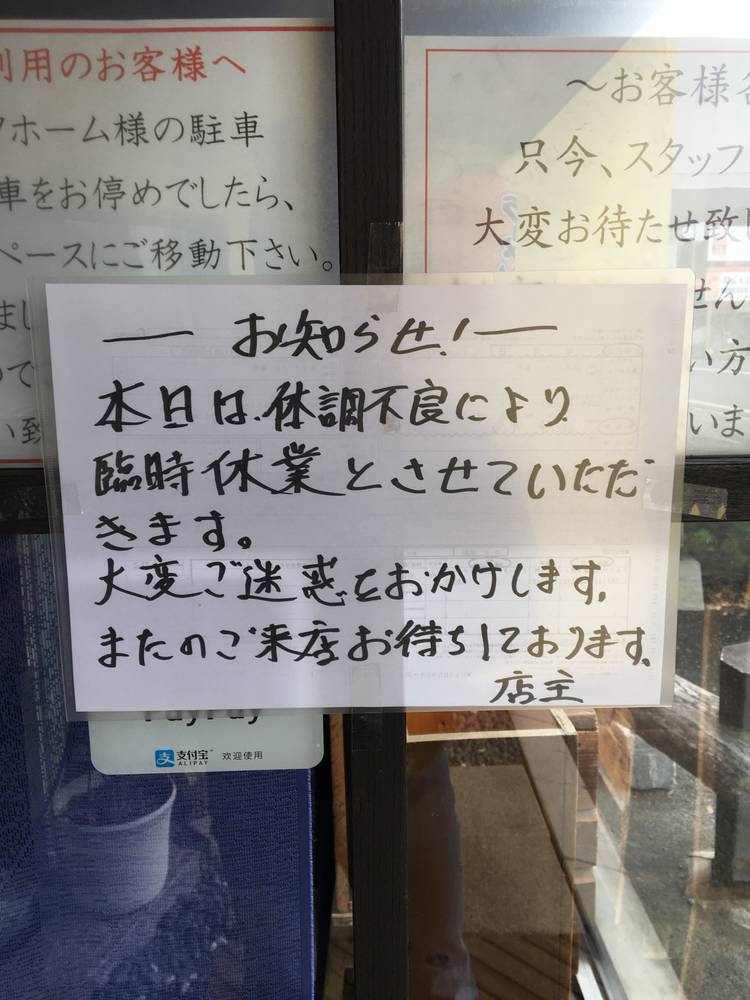 利用のお客様へ
ホーム様の駐車
車をお停めでしたら、
ペースにご移動下さい。
～お客様各
只今、スタッフ
大変お待たせ致
せん
い方
いま
お知らせ!
本日は、体調不良により
臨時休業とさせていただ
きます。
大変ご迷惑をおかけします。
またのご来店お待ちしております。
店主
PayPay
支付宝 欢迎使用
ALIPAY